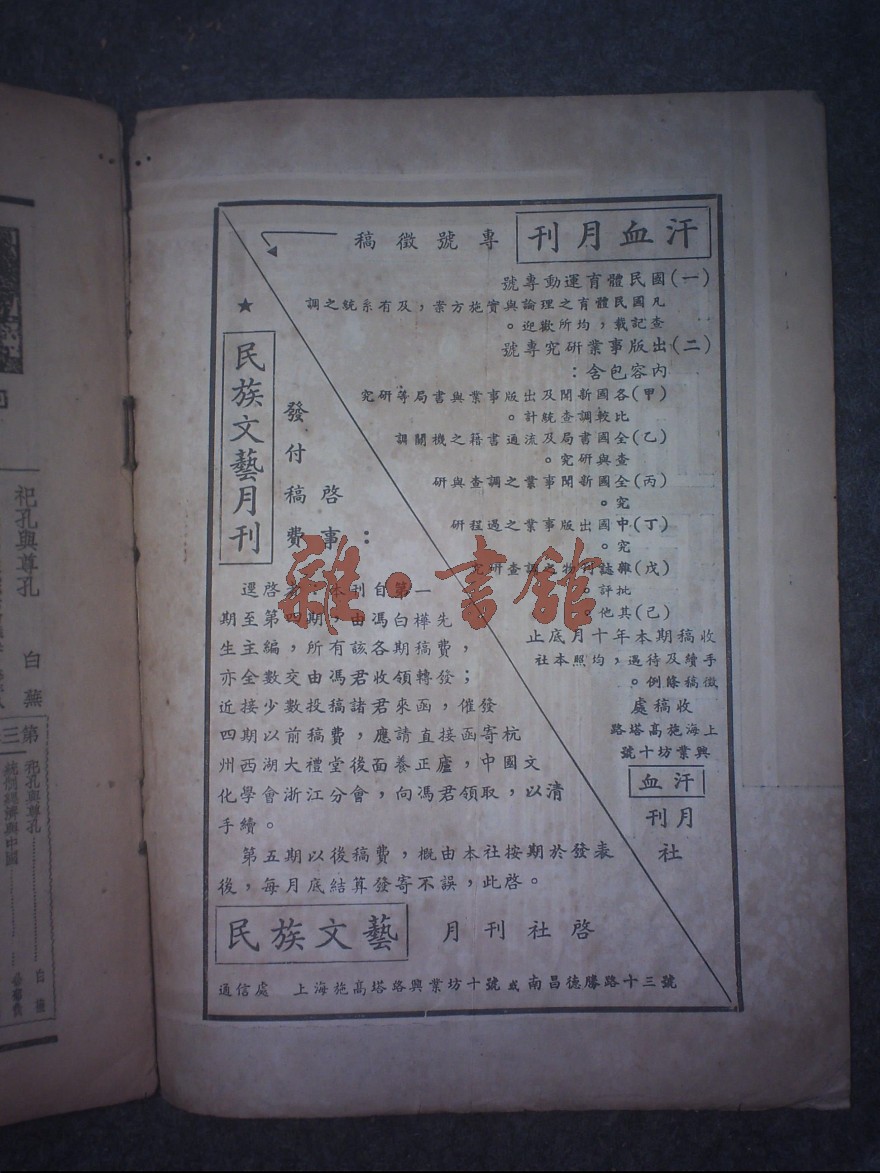 汗血月刊 專號徵稿
(一)國民體育運動專號
凡國民體育之理論與實施方案，及有系統之調
查記載，均所歡迎。
(二)出版事業研究專號
內容包含：
(甲)各國新聞及出版事業與書局等研究
比較調查統計。
(乙)全國書局及流通書籍之機關調
查與研究。
(丙)全國新聞事業之調查與研
究。
(丁)中國出版事業之過程研
究。
(戊)雜誌刊物之調查研究
批評。
(己)其他。
收稿期本年十月底止
手續及待遇，均照本社
徵稿條例。
收稿處
上海施高塔路
興業坊十號
汗血
月刊
社
★
民族文藝月刊
發付稿費
啓事：
逕啓者：本刊自第一
期至第四期，由馮白樺先
生主編，所有該各期稿費，
亦全數交由馮君收領轉發；
近接少數投稿諸君來函，催發
四期以前稿費，應請直接函寄杭
州西湖大禮堂後面養正廬，中國文
化學會浙江分會，向馮君領取，以清
手續。
第五期以後稿費，概由本社按期於發表
後，每月底結算發寄不誤，此啓。
民族文藝月刊社啓
通信處　上海施高塔路興業坊十號或南昌德勝路十三號
雜·書館
祀孔與尊孔
白蕪
第三
祀孔與尊孔
白蕪
統制經濟與中國